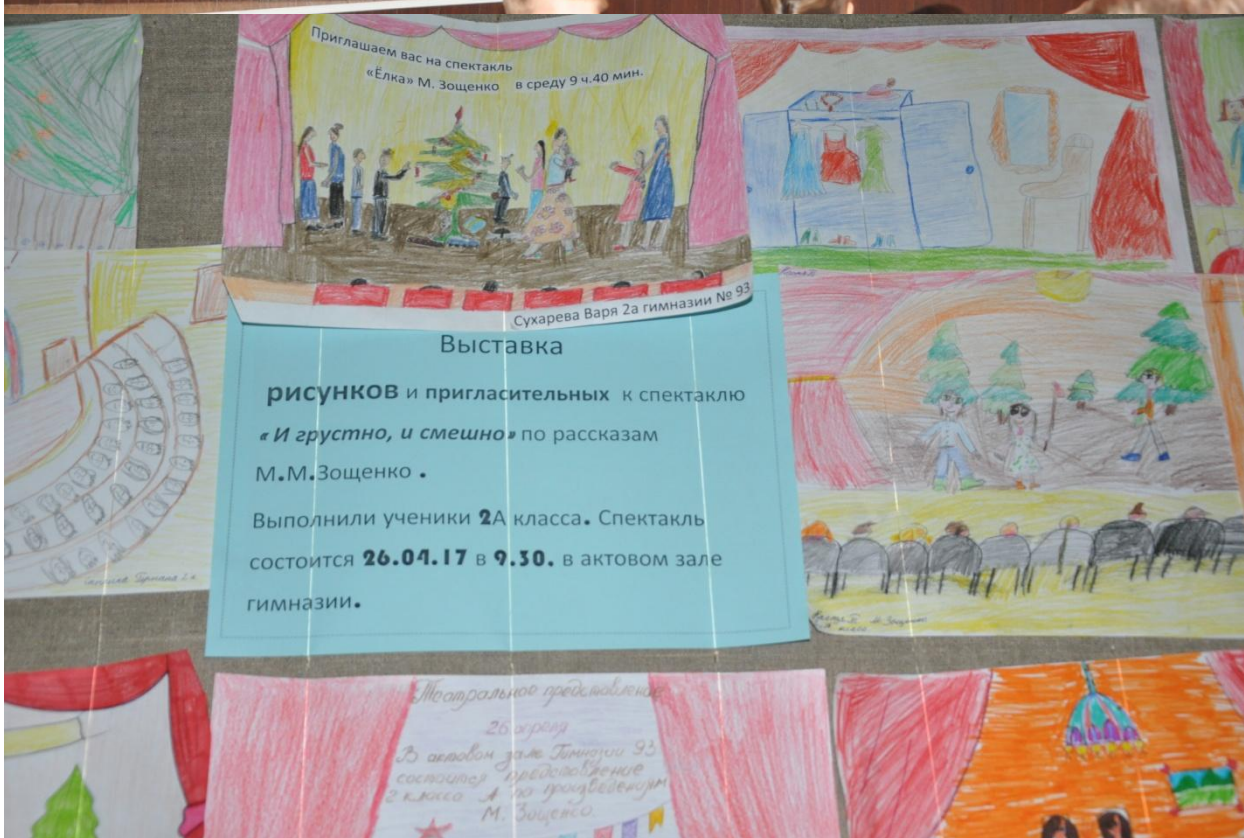 Приглашаем вас на спектакль
«Ёлка» М. Зощенко в среду 9 ч.40 мин.
Сухарева Варя 2а гимназии № 93
Выставка
рисунков и пригласительных к спектаклю
« И грустно, и смешно» по рассказам
М.М.Зощенко .
Выполнили ученики 2А класса. Спектакль
состоится 26.04.17 в 9.30. в актовом зале
гимназии.
Театральное представление
26 апреля
В актовом зале Гимназии 93
состоится представление
2 класса А по произведениям
М. Зощенко.